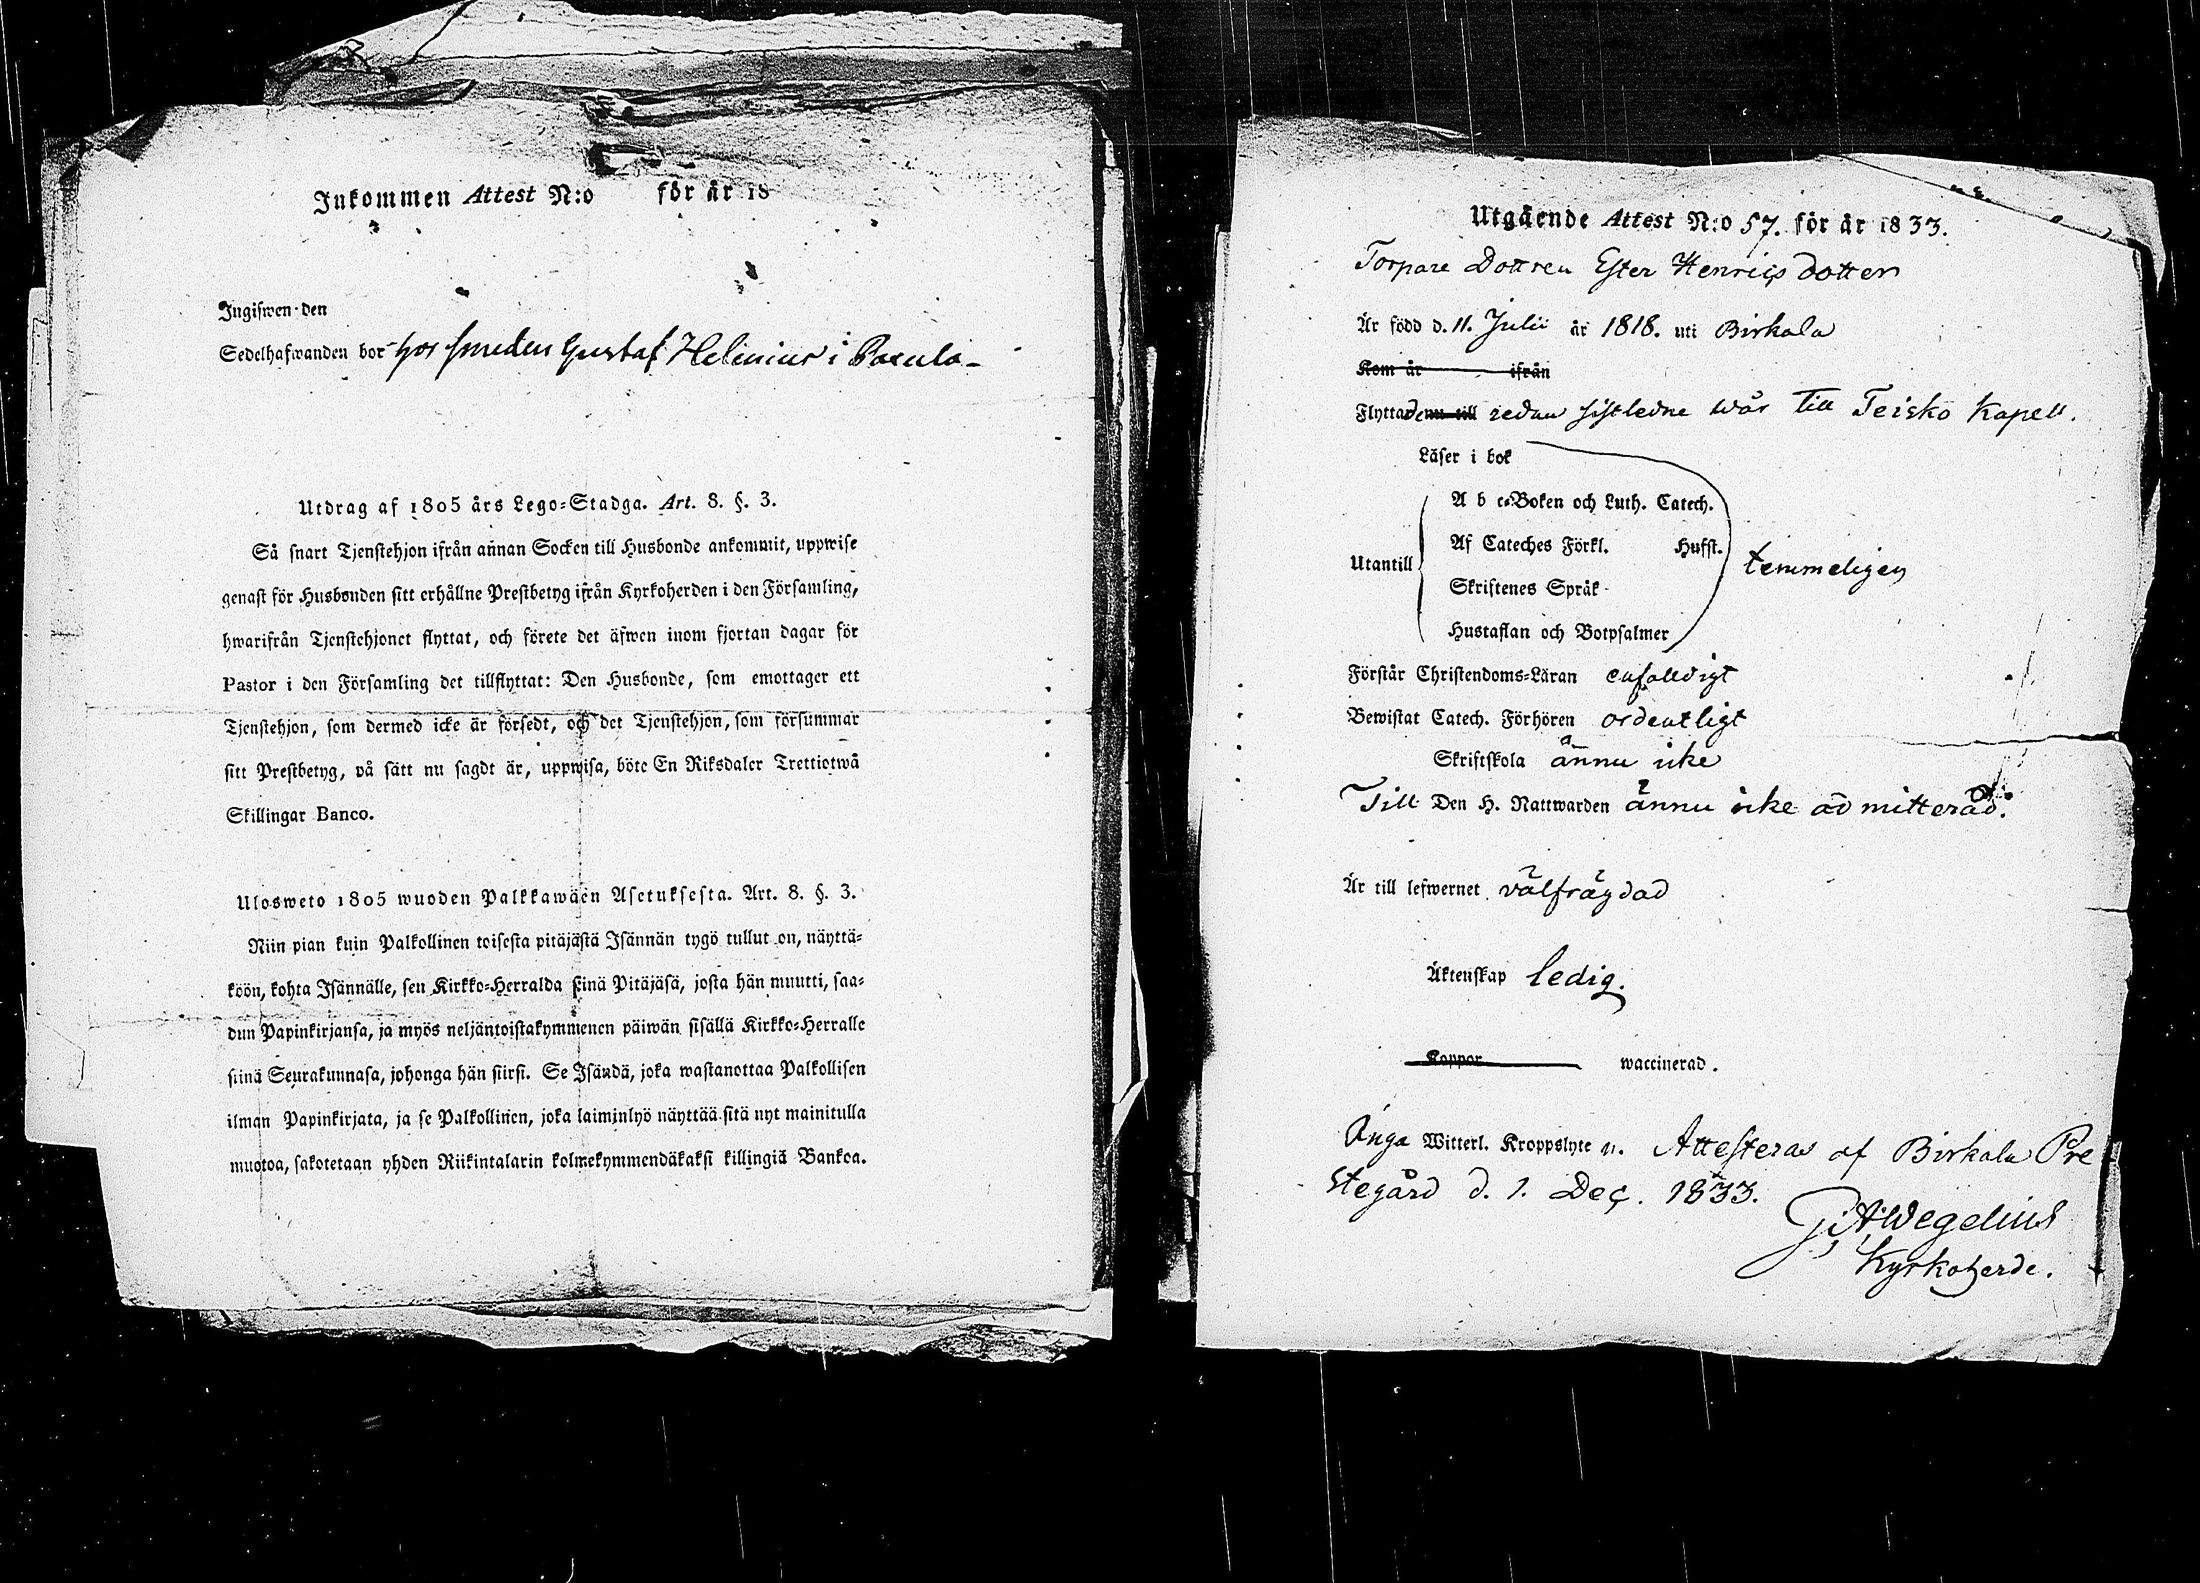 Inkommen Attest N:o för år 18
Ingifwen den
Sedelhafwanden bor hos smeden Gustaf Helinius i Paavola
Utdrag af 1805 års Lego-Stadga. Art. 8. §. 3.
Så snart Tjenstehjon ifrån annan Socken till Husbonde ankommit, uppwise
genast för Husbonden sitt erhållne Prestbetyg ifrån Kyrkoherden i den Församling,
hwarifrån Tjenstehjonet flyttat, och förete det äfwen inom fjortan dagar för
Pastor i den Församling det tillflyttat: Den Husbonde, som emottager ett
Tjenstehjon, som dermed icke är försedt, och det Tjenstehjon, som försummar
sitt Prestbetyg, på sätt nu sagdt är, uppwisa, böte En Riksdaler Trettiotwå
Skillingar Banco.
Ulosweto 1805 wuoden Palkkawäen Asetuksesta. Art. 8. §. 3.
Niin pian kuin Palkollinen toisesta pitäjästä Isännän tygö tullut on, näyttä-
köön, kohta Isännälle, sen Kirkko-Herralda siinä Pitäjäsä, josta hän muutti, saa-
dun Papinkirjansa, ja myös neljäntoistakymmenen päiwän sisällä Kirkko-Herralle
siinä Seurakunnasa, johonga hän siirsi. Se Isändä, joka wastanottaa Palkollisen
ilman Papinkirjata, ja se Palkollinen, joka laiminlyö näyttää sitä nyt mainitulla
muotoa, sakotetaan yhden Riikintalarin kolmekymmendäkaksi killingiä Bankoa.
Utgäende Attest N:o 57. för år 1833.
Torpare Dottren Ester Henrics dotter
Är född d. 11. Julii år 1818. uti Birkala
Kom år ifrån
Flyttade nu till redan sistledne wår till Teisko Kapell.
Läser i bok
A b c-Boken och Luth. Catech.
Af Cateches Förkl. Hufst.
Utantill temmeligen
Skriftenes Språk
Hustaflan och Botpsalmer
Förstår Christendoms-Läran enfalldigt
Bewistat Catech. Förhören ordentligt
Skriftskola ännu icke
Till Den H. Nattwarden ännu icke admitterad.
Är till lefwernet välfrägdad
Äktenskap ledig.
Koppor waccinerad.
Inga Witterl. Kroppslyte n. Attesteras af Birkala Pre
stegård d. 1. Dec. 1833.
G. A. Wegelius
Kyrkoherde.